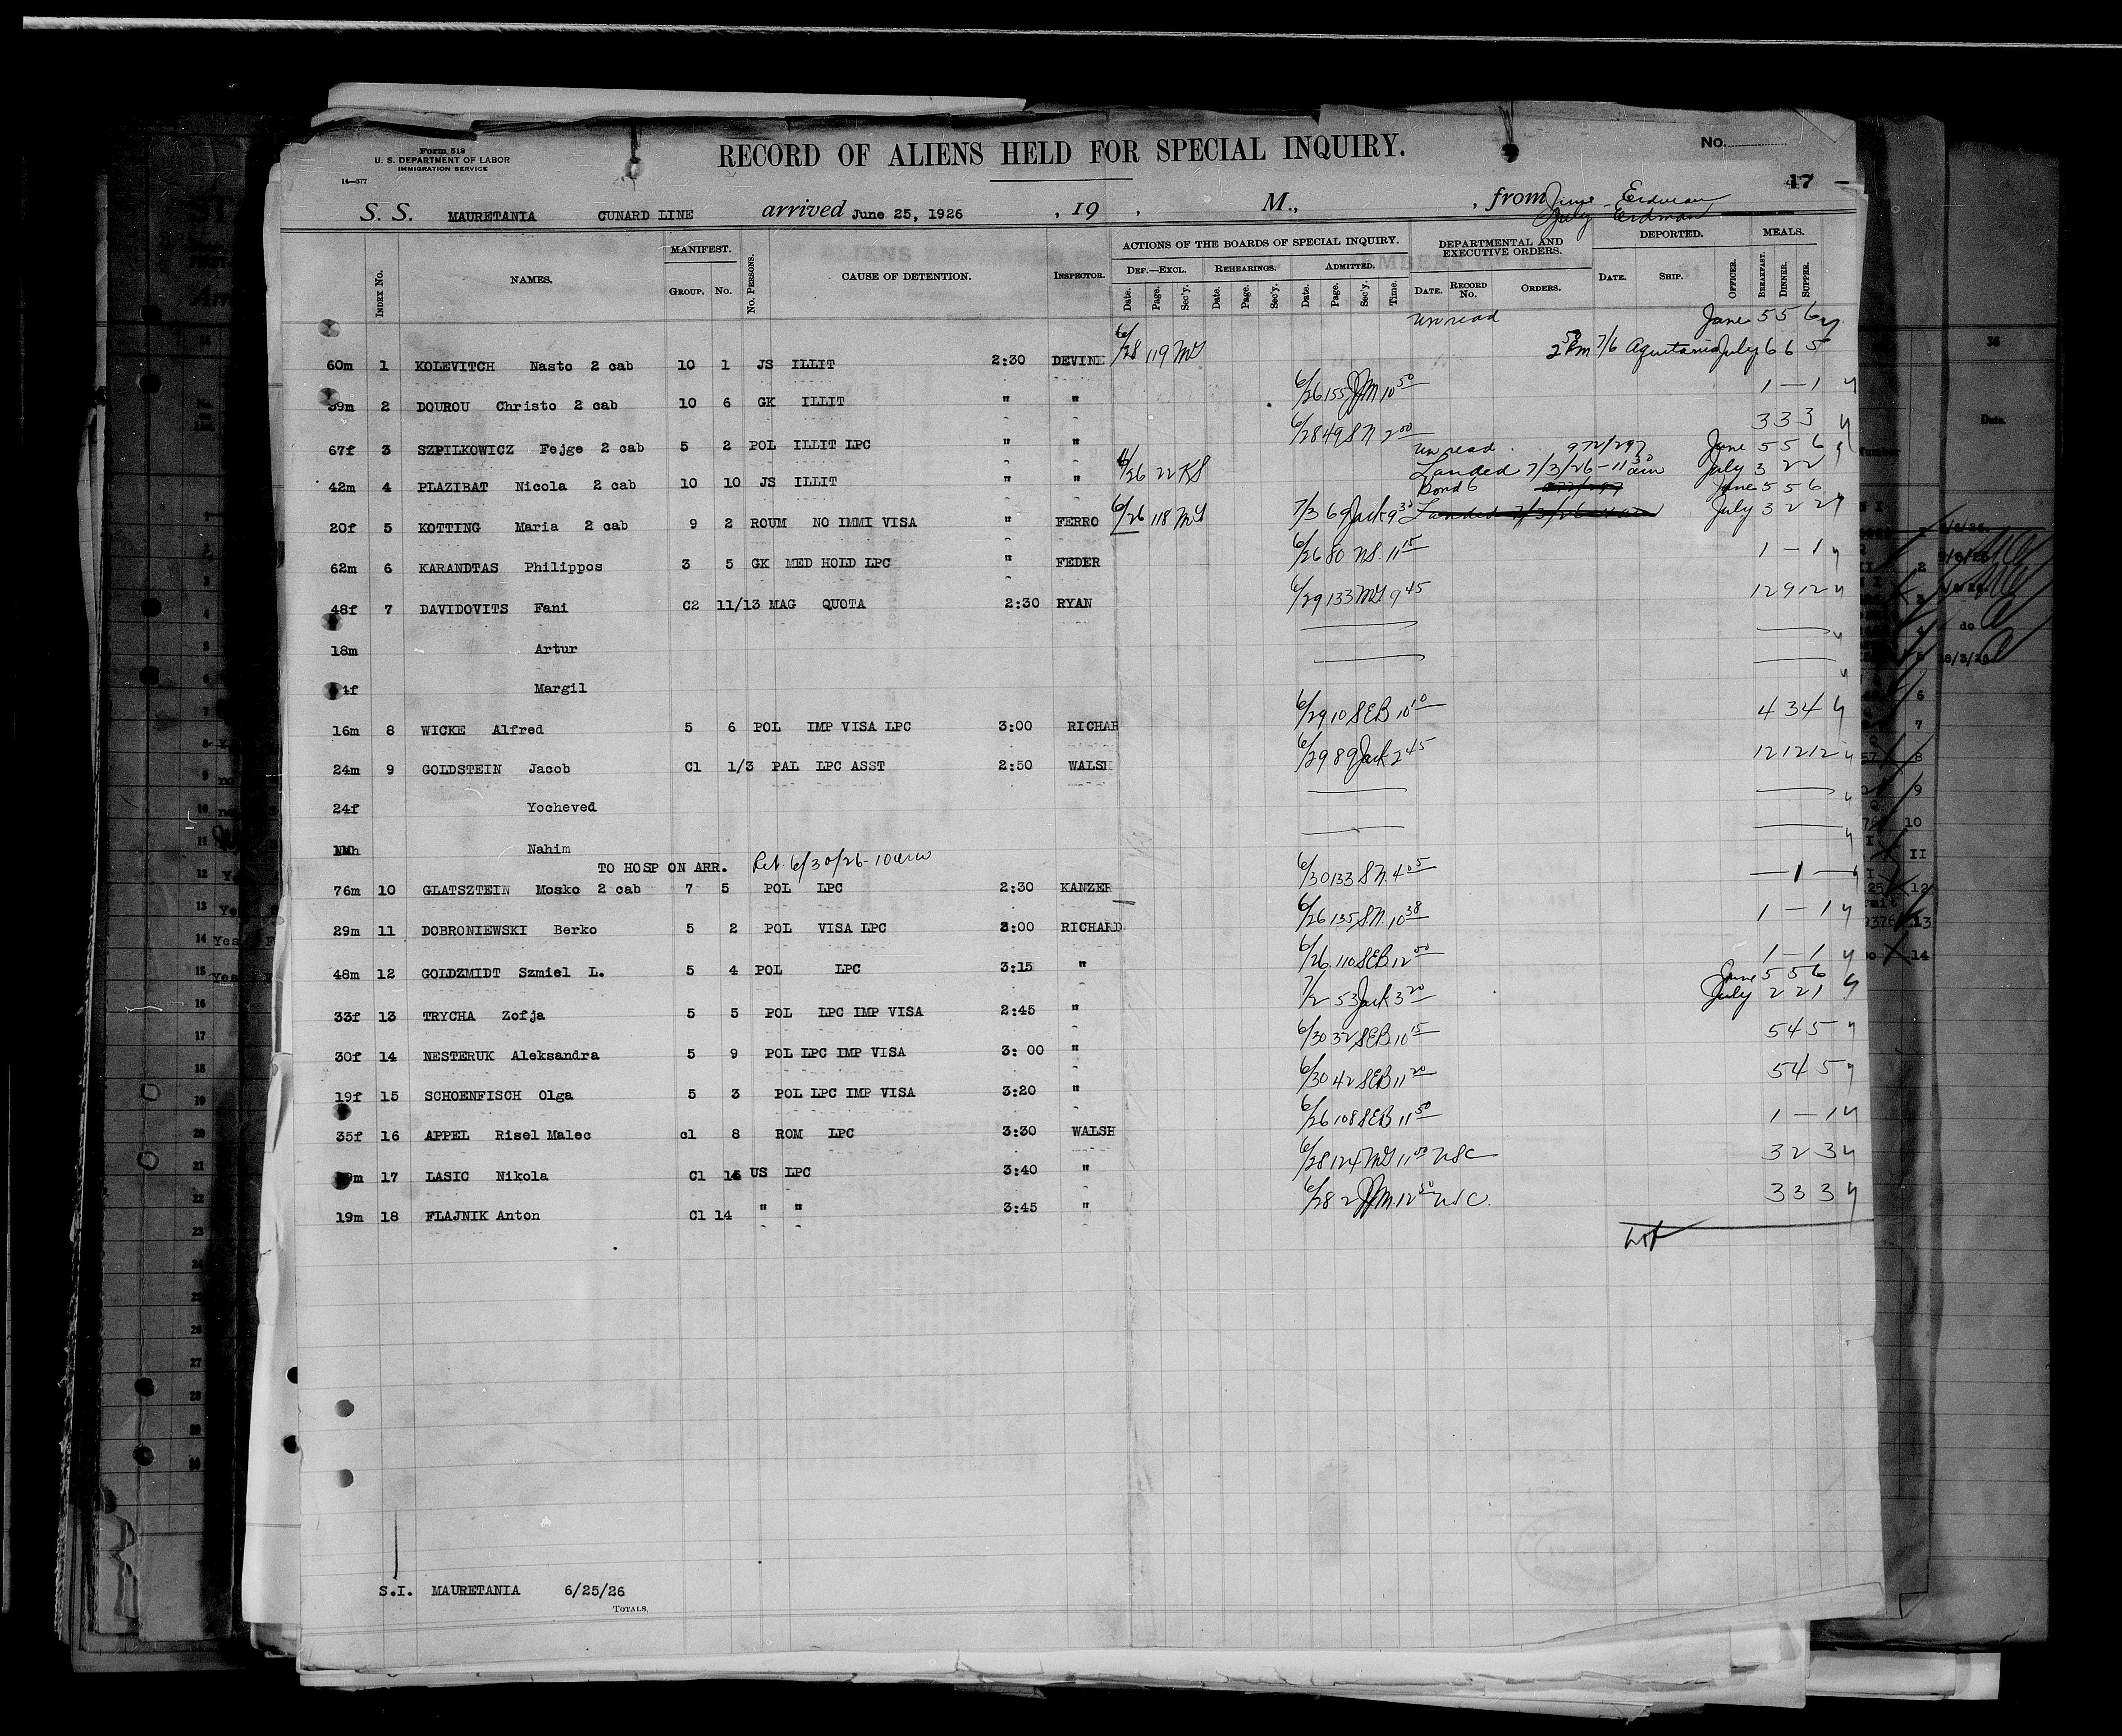 Form 518
U. S. DEPARTMENT OF LABOR
IMMIGRATION SERVICE
14—377
RECORD OF ALIENS HELD FOR SPECIAL INQUIRY.
No.
17 —
S. S. MAURETANIA CUNARD LINE arrived June 25, 1926 , 19 , M., , from June - Erdman
July Erdman
INDEX No. NAMES. MANIFEST. GROUP. No. No. PERSONS. CAUSE OF DETENTION. INSPECTOR. ACTIONS OF THE BOARDS OF SPECIAL INQUIRY. DEF.—EXCL. REHEARINGS. ADMITTED. DEPARTMENTAL AND EXECUTIVE ORDERS. DEPORTED. MEALS.
Date. Page. Sec'y. Date. Page. Sec'y. Date. Page. Sec'y. Time. DATE. RECORD No. ORDERS. DATE. SHIP. OFFICER. BREAKFAST. DINNER. SUPPER.
unread June 5 5 6
60m 1 KOLEVITCH Nasto 2 cab 10 1 JS ILLIT 2:30 DEVINE 6/28 119 MG 2 50 Pm 7/6 Aquitania July 6 6 5
39m 2 DOUROU Christo 2 cab 10 6 GK ILLIT " " 6/26 155 JJM 10 50 1 — 1
67f 3 SZPILKOWICZ Fejge 2 cab 5 2 POL ILLIT LPC " " 6/28 49 SN 2 00 3 3 3
unread 972/297 June 5 5 6
42m 4 PLAZIBAT Nicola 2 cab 10 10 JS ILLIT " " 6/26 22 KS Landed 7/3/26 - 11 30 am July 3 2 2
Bond 6 972/297 June 5 5 6
20f 5 KOTTING Maria 2 cab 9 2 ROUM NO IMMI VISA " FERRO 6/26 118 MG 7/3 69 Jack 9 30 Landed 7/3/26 July 3 2 2
62m 6 KARANDTAS Philippos 3 5 GK MED HOLD LPC " FEDER 6/26 80 NS. 11 15 1 — 1
48f 7 DAVIDOVITS Fani C2 11/13 MAG QUOTA 2:30 RYAN 6/29 133 MG 9 45 12 9 12
18m Artur
Margil
16m 8 WICKE Alfred 5 6 POL IMP VISA LPC 3:00 RICHAR 6/29 10 SEB 10 10 4 3 4
24m 9 GOLDSTEIN Jacob C1 1/3 PAL LPC ASST 2:50 WALSH 6/29 89 Jack 2 45 12 12 12
24f Yocheved
Nahim
TO HOSP ON ARR. Ret. 6/30/26 - 10 am
76m 10 GLATSZTEIN Mosko 2 cab 7 5 POL LPC 2:30 KANZER 6/30 133 SN. 4 05 — 1 —
29m 11 DOBRONIEWSKI Berko 5 2 POL VISA LPC 3:00 RICHARD 6/26 135 SN. 10 38 1 — 1
48m 12 GOLDZMIDT Szmiel L. 5 4 POL LPC 3:15 " 6/26 110 SEB 12 00 1 — 1
June 5 5 6
33f 13 TRYCHA Zofja 5 5 POL LPC IMP VISA 2:45 " 7/2 53 Jack 3 20 July 2 2 1
30f 14 NESTERUK Aleksandra 5 9 POL LPC IMP VISA 3: 00 " 6/30 32 SEB 10 15 5 4 5
19f 15 SCHOENFISCH Olga 5 3 POL LPC IMP VISA 3:20 " 6/30 42 SEB 11 20 5 4 5
35f 16 APPEL Risel Malec c1 8 ROM LPC 3:30 WALSH 6/26 108 SEB 11 50 1 — 1
17 LASIC Nikola C1 15 US LPC 3:40 " 6/28 124 MG 11 00 USC 3 2 3
19m 18 FLAJNIK Anton C1 14 " " 3:45 " 6/28 2 JJM 12 50 USC. 3 3 3
S.I. MAURETANIA 6/25/26
TOTALS.